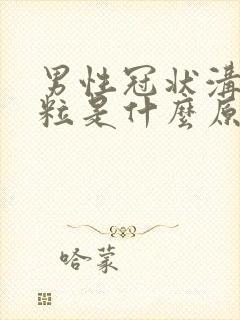 男性冠状溝
粒是什麼原
哈蒙